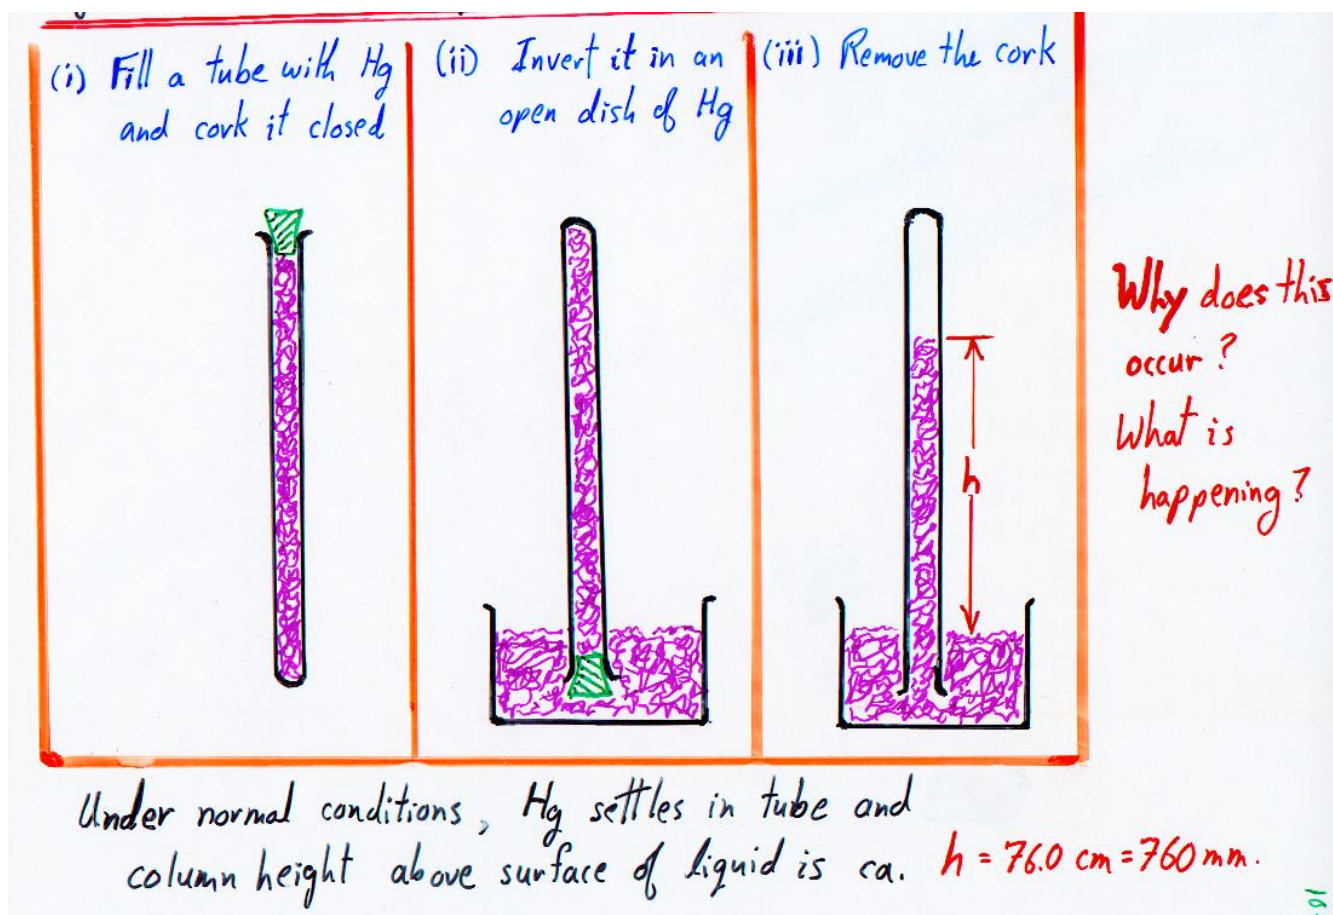 (i) Fill a tube with Hg
and cork it closed
(ii) Invert it in an
open dish of Hg
(iii) Remove the cork
h
Why does this
occur?
What is
happening?
Under normal conditions, Hg settles in tube and
column height above surface of liquid is ca. h = 76.0 cm = 760 mm.